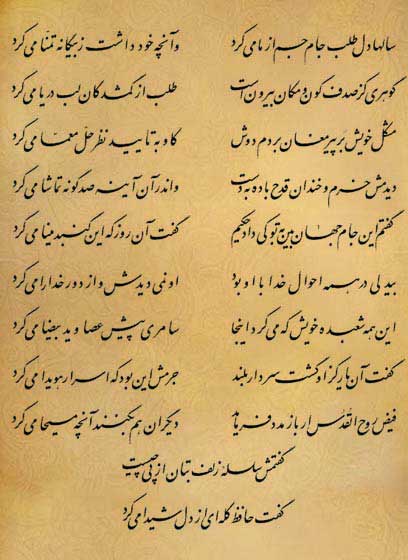 سالها دل طلب جام جم از ما می کرد وآنچه خود داشت ز بیگانه تمنّا می کرد
گوهری کز صدف کون و مکان بیرون است طلب از گمشدگان لب دریا می کرد
مشکل خویش بر پیر مغان بردم دوش کاو به تایید نظر حلّ معمّا می کرد
دیدمش خرم و خندان قدح باده به دست واندر آن آینه صد گونه تماشا می کرد
گفتم این جام جهان بین به تو کی داد حکیم گفت آن روز که این گنبد مینا می کرد
بیدلی در همه احوال خدا با او بود او نمی دیدش و از دور خدا را می کرد
این همه شعبده خویش که می کرد اینجا سامری پیش عصا و ید بیضا می کرد
گفت آن یار کز او گشت سر دار بلند جرمش این بود که اسرار هویدا می کرد
فیض روح القدس ار باز مدد فرماید دیگران هم بکنند آنچه مسیحا می کرد
گفتمش سلسله زلف بتان از پی چیست
گفت حافظ گله ای از دل شیدا می کرد